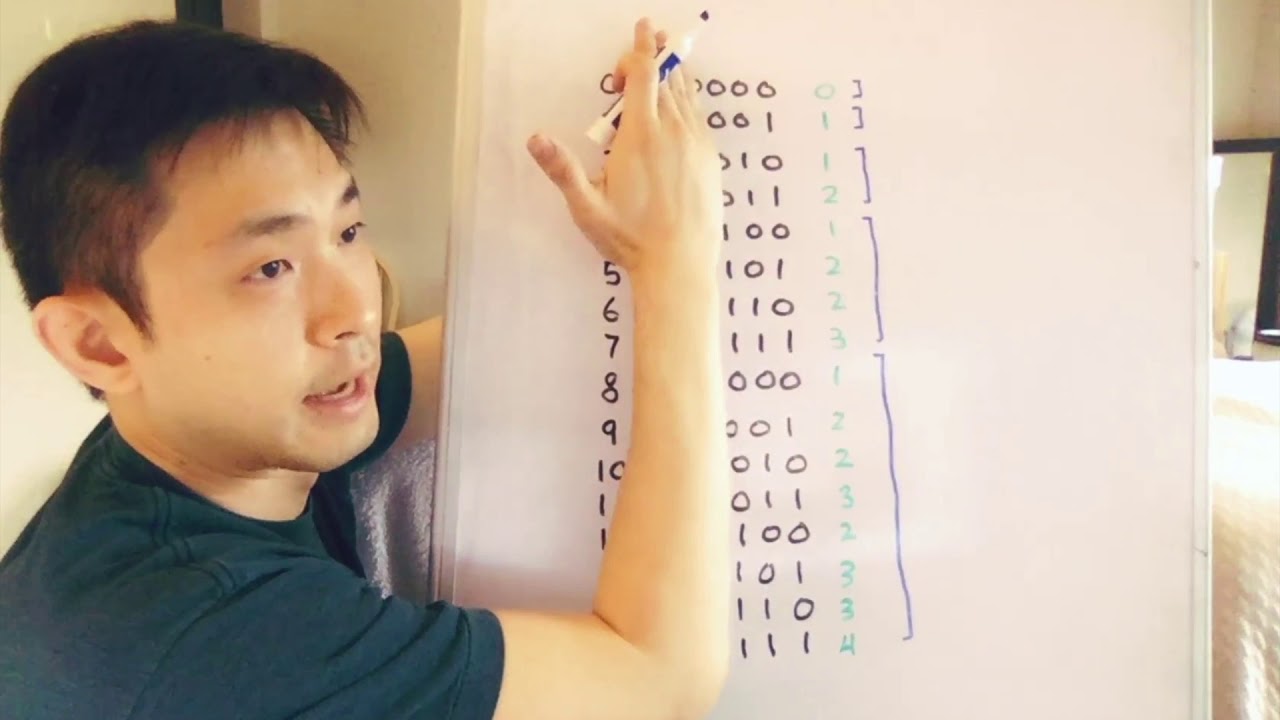 0 0000 0 ]
001 1 ]
010 1
011 2
100 1
5 101 2
6 110 2
7 111 3
8 000 1
9 001 2
10 010 2
1 011 3
1 100 2
101 3
110 3
111 4